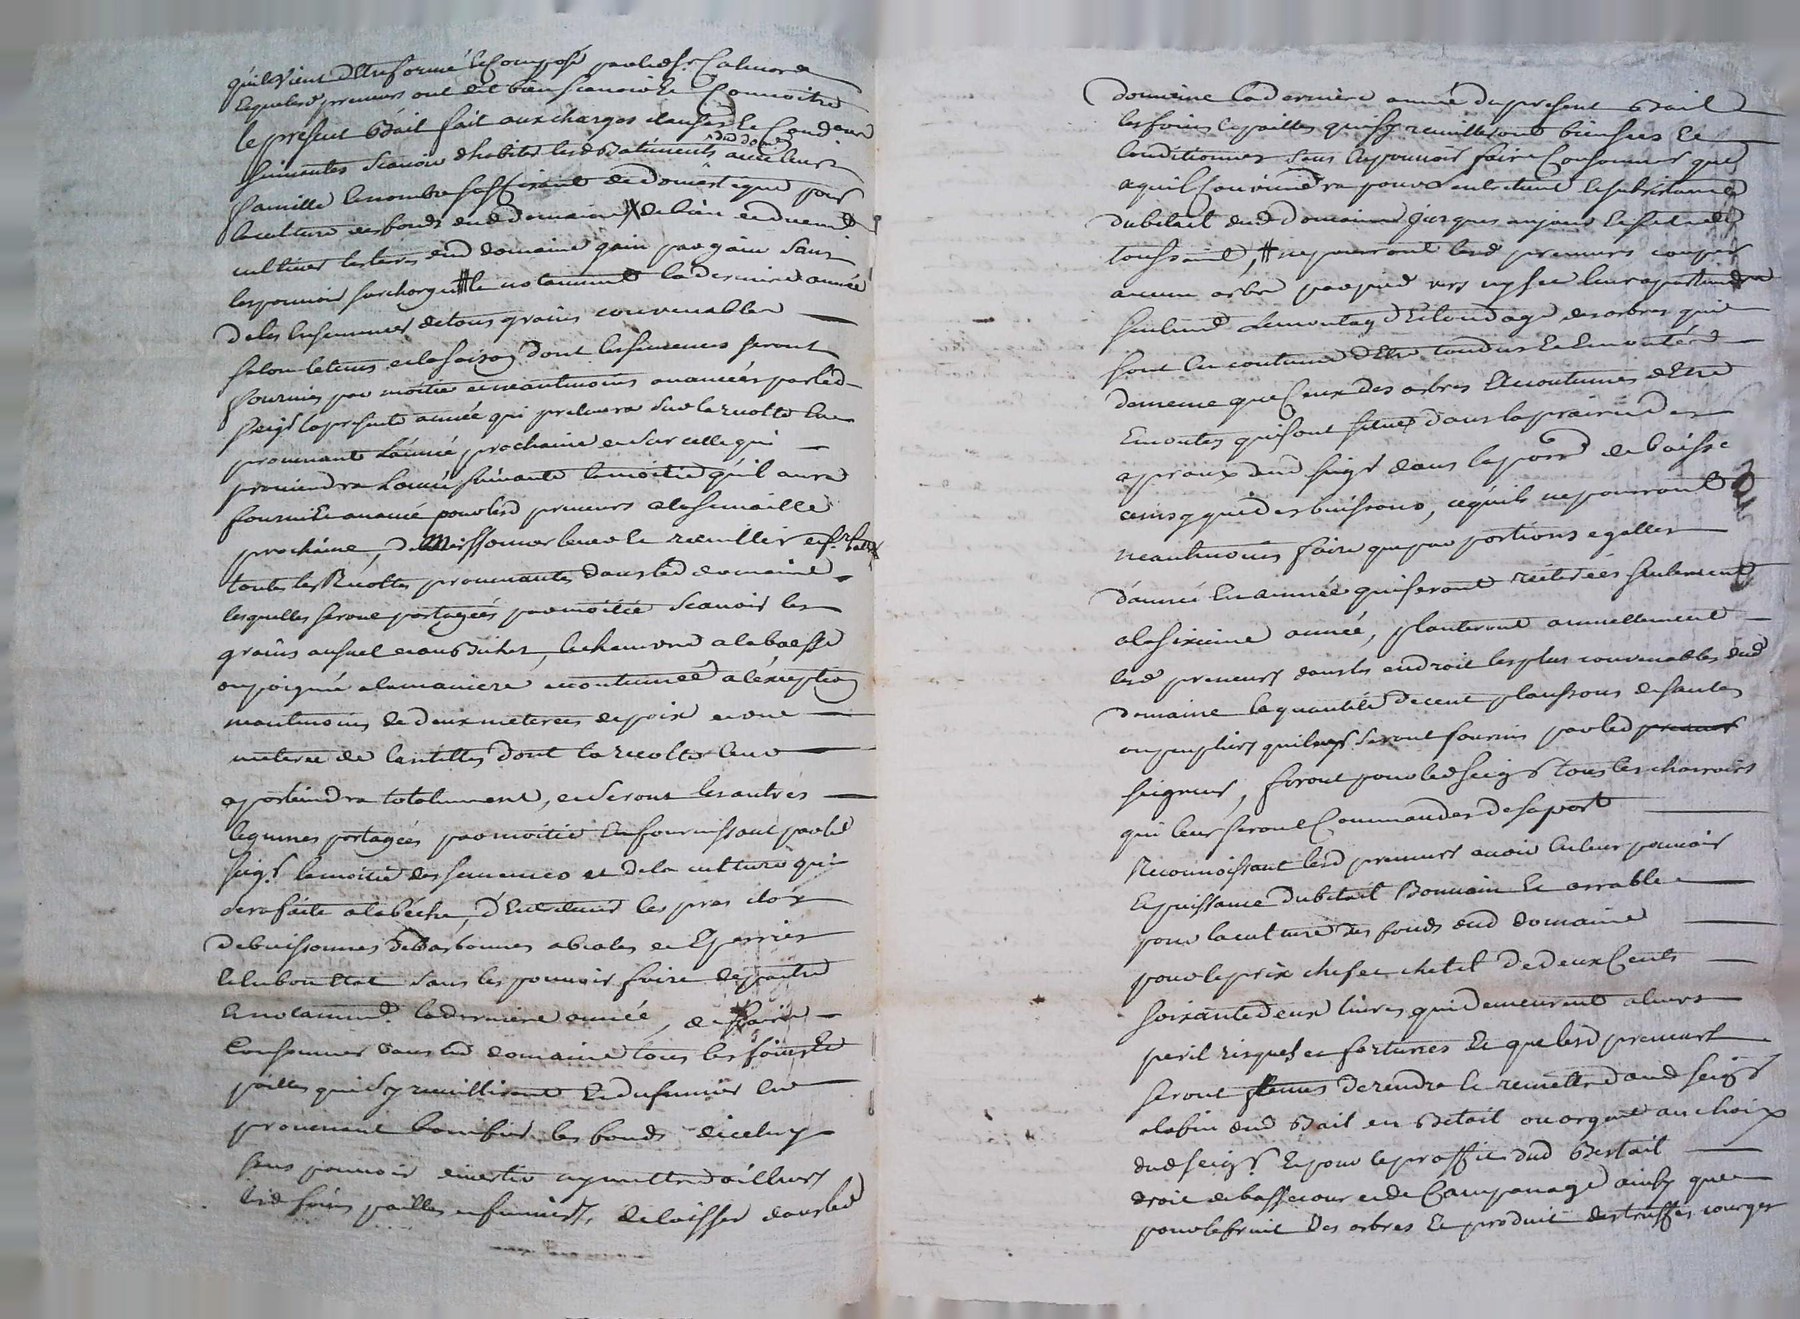 qu'il vient d'etre formé et composé par led sr Calmard
lequel lesd preneurs ont dit bien scavoir et connoitre
le present Bail fait aux charges clauses et condõns
suivantes scavoir d'habiter lesd Batiments dud dom avec leur
famille et nombre suffisant de domestiques pour
la culture des fonds dud domaine de bien et duement
cultiver les terres dud domaine gain par gain sans
les pouvoir surcharger et notamment la derniere année
de les ensemencer de tous grains convenables
selon le tems et la saison dont les semences seront
fournies par moitié et neantmoins avancées par led
seigr la presente année qui prelevera sur la recolte en
provenante l'année prochaine et sur celle qui
proviendra l'année suivante la moitié qu'il aura
fournie et avancé pour lesd preneurs a la semaille
prochaine, de moissonner lever et receuillir et fe battre
toutes les Recoltes provenantes dans led domaine
lesquelles seront partagées par moitié scavoir les
grains au suel et au Bichet, le chanvre a la baesse
ou poignée a la maniere accoutumée a l'exception
neantmoins de deux meterées de poix et une
meterée de lentilles dont la recolte leur
apartiendra totalement, et seront les autres
legumes partagées par moitié en fournissant par led
seigr la moitié des semences et de la culture qui
sera faite a la bêche, d'entretenir les pres clos
debuissonnés et en bon Etat sans les pouvoir faire depaitre
et notammt la derniere année, de faire
consommer dans led domaine tous les foins et
pailles qui s'y receuilliront et du fumier en
provenant bonifier les fonds d'iceluy
sans pouvoir divertir ny mettre d'ailleurs
lesd foins pailles et fumiers, de laisser dans led
domaine la derniere année du present Bail
les foins et pailles qui s'y receuilleront bien secs et
conditionnés sans en pouvoir faire consommer que
ce qu'il conviendra pour l'entretient et subsistance
du betail dud domaine jusques au jour et fete de
toussaint, ne pourront lesd preneurs couper
aucun arbre par pied vers ny sec leur apartiendra
seulemt l'emontage et tondage des arbres qui
sont en coutume d'etre tondus et emontés
de meme que ceux des arbres accoutumés d'etre
emontés qui sont situés dans la prairie de
apraux dud seigr dans le pred de baisse
ceux qui des buissons, ce qu'ils ne pourront
neantmoins faire que par portions egalles
d'année en année qui seront reiterées seulement
a la sixieme année, planteront annuellement
lesd preneurs dans les endroit les plus convenables dud
domaine la quantité de cent planssons de saules
ou peupliers qui leurs seront fournis par led
seigneur, feront pour led seigr tous les charrois
qui leurs seront commandes de sa part
Reconnoissant lesd preneurs avoir en leur pouvoir
et puissance du betail Bouvain et arrable
pour la culture des fonds dud domaine
pour le prix chef et chetel de deux cents
soixante deux livres qui demeurent a leurs
peril risques et fortunes et que lesd preneurs
seront tenus de rendre et remettre aud seigr
a la fin dud Bail en Betail ou argent au choix
dud seigr. Et pour le proffit dud Bestail
droit de basse cour et de Campanage ainsy que
pour le fruit des arbres et produit des truffes courges